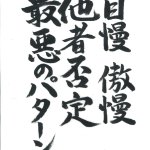 自慢 傲慢
他者否定
最悪のパターン